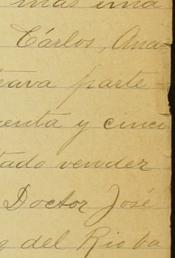 mas una
Cárlos, Ana
tava parte
enta y cinco
tado vender
Doctor José
del Rio ba